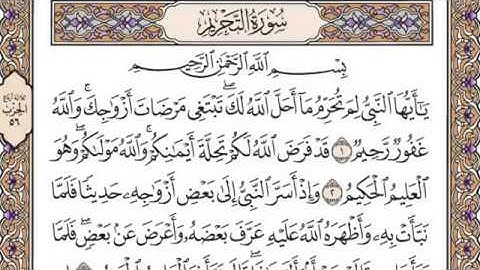 سُورَةُ التَّحْرِيمِ
بِسْمِ اللَّهِ الرَّحْمَٰنِ الرَّحِيمِ
يَا أَيُّهَا النَّبِيُّ لِمَ تُحَرِّمُ مَا أَحَلَّ اللَّهُ لَكَ ۖ تَبْتَغِي مَرْضَاتَ أَزْوَاجِكَ ۚ وَاللَّهُ
غَفُورٌ رَّحِيمٌ ١ قَدْ فَرَضَ اللَّهُ لَكُمْ تَحِلَّةَ أَيْمَانِكُمْ ۚ وَاللَّهُ مَوْلَاكُمْ ۖ وَهُوَ
الْعَلِيمُ الْحَكِيمُ ٢ وَإِذْ أَسَرَّ النَّبِيُّ إِلَىٰ بَعْضِ أَزْوَاجِهِ حَدِيثًا فَلَمَّا
نَبَّأَتْ بِهِ وَأَظْهَرَهُ اللَّهُ عَلَيْهِ عَرَّفَ بَعْضَهُ وَأَعْرَضَ عَنْ بَعْضٍ ۖ فَلَمَّا
الحزب
٥٦